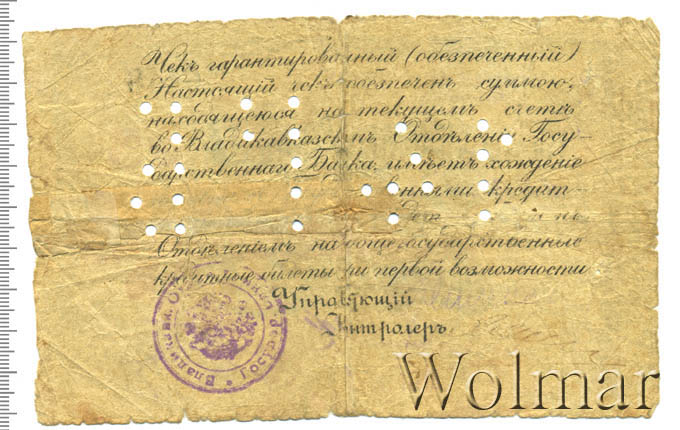 Чекъ гарантированный (обезпеченный)
Настоящій чекъ обезпечен суммою,
находящеюся на текущемъ счетѣ
во Владикавказскомъ Отдѣленіи Госу-
дарственнаго Банка, имѣетъ хожденіе
кредит-
Отдѣленіемъ на общегосударственные
кредитные билеты при первой возможности
Управляющій
Контролеръ
Wolmar